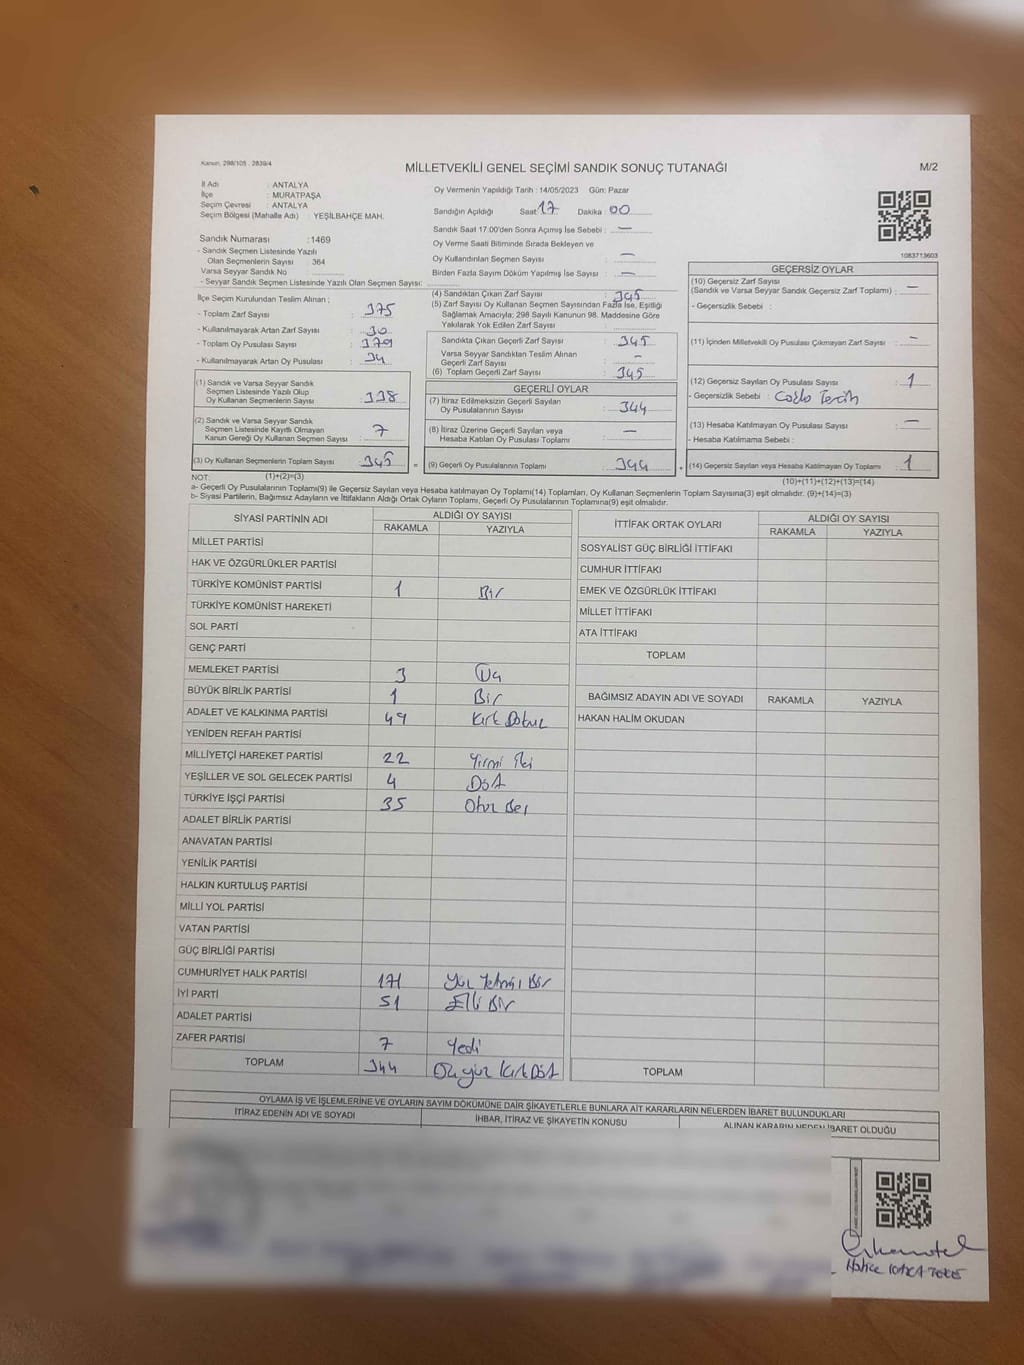 Kanun: 298/105 , 2839/4
MİLLETVEKİLİ GENEL SEÇİMİ SANDIK SONUÇ TUTANAĞI
M/2
İl Adı : ANTALYA
İlçe : MURATPAŞA
Seçim Çevresi : ANTALYA
Seçim Bölgesi (Mahalle Adı) : YEŞİLBAHÇE MAH.
Oy Vermenin Yapıldığı Tarih : 14/05/2023 Gün: Pazar
Sandığın Açıldığı Saat 17 Dakika 00
Sandık Saat 17.00'den Sonra Açımış İse Sebebi : —
Oy Verme Saati Bitiminde Sırada Bekleyen ve
Oy Kullandırılan Seçmen Sayısı —
Birden Fazla Sayım Döküm Yapılmış İse Sayısı : —
Sandık Numarası :1469
- Sandık Seçmen Listesinde Yazılı
Olan Seçmenlerin Sayısı 364
Varsa Seyyar Sandık No
- Seyyar Sandık Seçmen Listesinde Yazılı Olan Seçmen Sayısı:
1083713603
İlçe Seçim Kurulundan Teslim Alınan ;
- Toplam Zarf Sayısı : 375
- Kullanılmayarak Artan Zarf Sayısı : 30
- Toplam Oy Pusulası Sayısı : 379
- Kullanılmayarak Artan Oy Pusulası : 34
(1) Sandık ve Varsa Seyyar Sandık
Seçmen Listesinde Yazılı Olup
Oy Kullanan Seçmenlerin Sayısı : 338
(2) Sandık ve Varsa Seyyar Sandık
Seçmen Listesinde Kayıtlı Olmayan
Kanun Gereği Oy Kullanan Seçmen Sayısı : 7
(3) Oy Kullanan Seçmenlerin Toplam Sayısı : 345
(4) Sandıktan Çıkan Zarf Sayısı : 345
(5) Zarf Sayısı Oy Kullanan Seçmen Sayısından Fazla İse, Eşitliği
Sağlamak Amacıyla; 298 Sayılı Kanunun 98. Maddesine Göre
Yakılarak Yok Edilen Zarf Sayısı :
Sandıkta Çıkan Geçerli Zarf Sayısı : 345
Varsa Seyyar Sandıktan Teslim Alınan
Geçerli Zarf Sayısı : —
(6) Toplam Geçerli Zarf Sayısı : 345
GEÇERLİ OYLAR
(7) İtiraz Edilmeksizin Geçerli Sayılan
Oy Pusulalarının Sayısı : 344
(8) İtiraz Üzerine Geçerli Sayılan veya
Hesaba Katılan Oy Pusulası Toplamı : —
= (9) Geçerli Oy Pusulalarının Toplamı : 344
GEÇERSİZ OYLAR
(10) Geçersiz Zarf Sayısı
(Sandık ve Varsa Seyyar Sandık Geçersiz Zarf Toplamı) : —
- Geçersizlik Sebebi :
(11) İçinden Milletvekili Oy Pusulası Çıkmayan Zarf Sayısı : —
(12) Geçersiz Sayılan Oy Pusulası Sayısı : 1
- Geçersizlik Sebebi : Çoklu Tercih
(13) Hesaba Katılmayan Oy Pusulası Sayısı : —
- Hesaba Katılmama Sebebi :
+ (14) Geçersiz Sayılan veya Hesaba Katılmayan Oy Toplamı : 1
NOT: (1)+(2)=(3)
(10)+(11)+(12)+(13)=(14)
a- Geçerli Oy Pusulalarının Toplamı(9) ile Geçersiz Sayılan veya Hesaba katılmayan Oy Toplamı(14) Toplamları, Oy Kullanan Seçmenlerin Toplam Sayısına(3) eşit olmalıdır. (9)+(14)=(3)
b- Siyasi Partilerin, Bağımsız Adayların ve İttifakların Aldığı Ortak Oyların Toplamı, Geçerli Oy Pusulalarının Toplamına(9) eşit olmalıdır.
SİYASİ PARTİNİN ADI ALDIĞI OY SAYISI
RAKAMLA YAZIYLA
MİLLET PARTİSİ
HAK VE ÖZGÜRLÜKLER PARTİSİ
TÜRKİYE KOMÜNİST PARTİSİ 1 Bir
TÜRKİYE KOMÜNİST HAREKETİ
SOL PARTİ
GENÇ PARTİ
MEMLEKET PARTİSİ 3 Üç
BÜYÜK BİRLİK PARTİSİ 1 Bir
ADALET VE KALKINMA PARTİSİ 49 Kırk Dokuz
YENİDEN REFAH PARTİSİ
MİLLİYETÇİ HAREKET PARTİSİ 22 Yirmi İki
YEŞİLLER VE SOL GELECEK PARTİSİ 4 Dört
TÜRKİYE İŞÇİ PARTİSİ 35 Otuz Beş
ADALET BİRLİK PARTİSİ
ANAVATAN PARTİSİ
YENİLİK PARTİSİ
HALKIN KURTULUŞ PARTİSİ
MİLLİ YOL PARTİSİ
VATAN PARTİSİ
GÜÇ BİRLİĞİ PARTİSİ
CUMHURİYET HALK PARTİSİ 171 Yüz Yetmiş Bir
İYİ PARTİ 51 Elli Bir
ADALET PARTİSİ
ZAFER PARTİSİ 7 Yedi
TOPLAM 344 Üçyüz Kırk Dört
İTTİFAK ORTAK OYLARI ALDIĞI OY SAYISI
RAKAMLA YAZIYLA
SOSYALİST GÜÇ BİRLİĞİ İTTİFAKI
CUMHUR İTTİFAKI
EMEK VE ÖZGÜRLÜK İTTİFAKI
MİLLET İTTİFAKI
ATA İTTİFAKI
TOPLAM
BAĞIMSIZ ADAYIN ADI VE SOYADI RAKAMLA YAZIYLA
HAKAN HALİM OKUDAN
TOPLAM
OYLAMA İŞ VE İŞLEMLERİNE VE OYLARIN SAYIM DÖKÜMÜNE DAİR ŞİKAYETLERLE BUNLARA AİT KARARLARIN NELERDEN İBARET BULUNDUKLARI
İTİRAZ EDENİN ADI VE SOYADI İHBAR, İTİRAZ VE ŞİKAYETİN KONUSU ALINAN KARARIN NEDEN İBARET OLDUĞU
Hatice